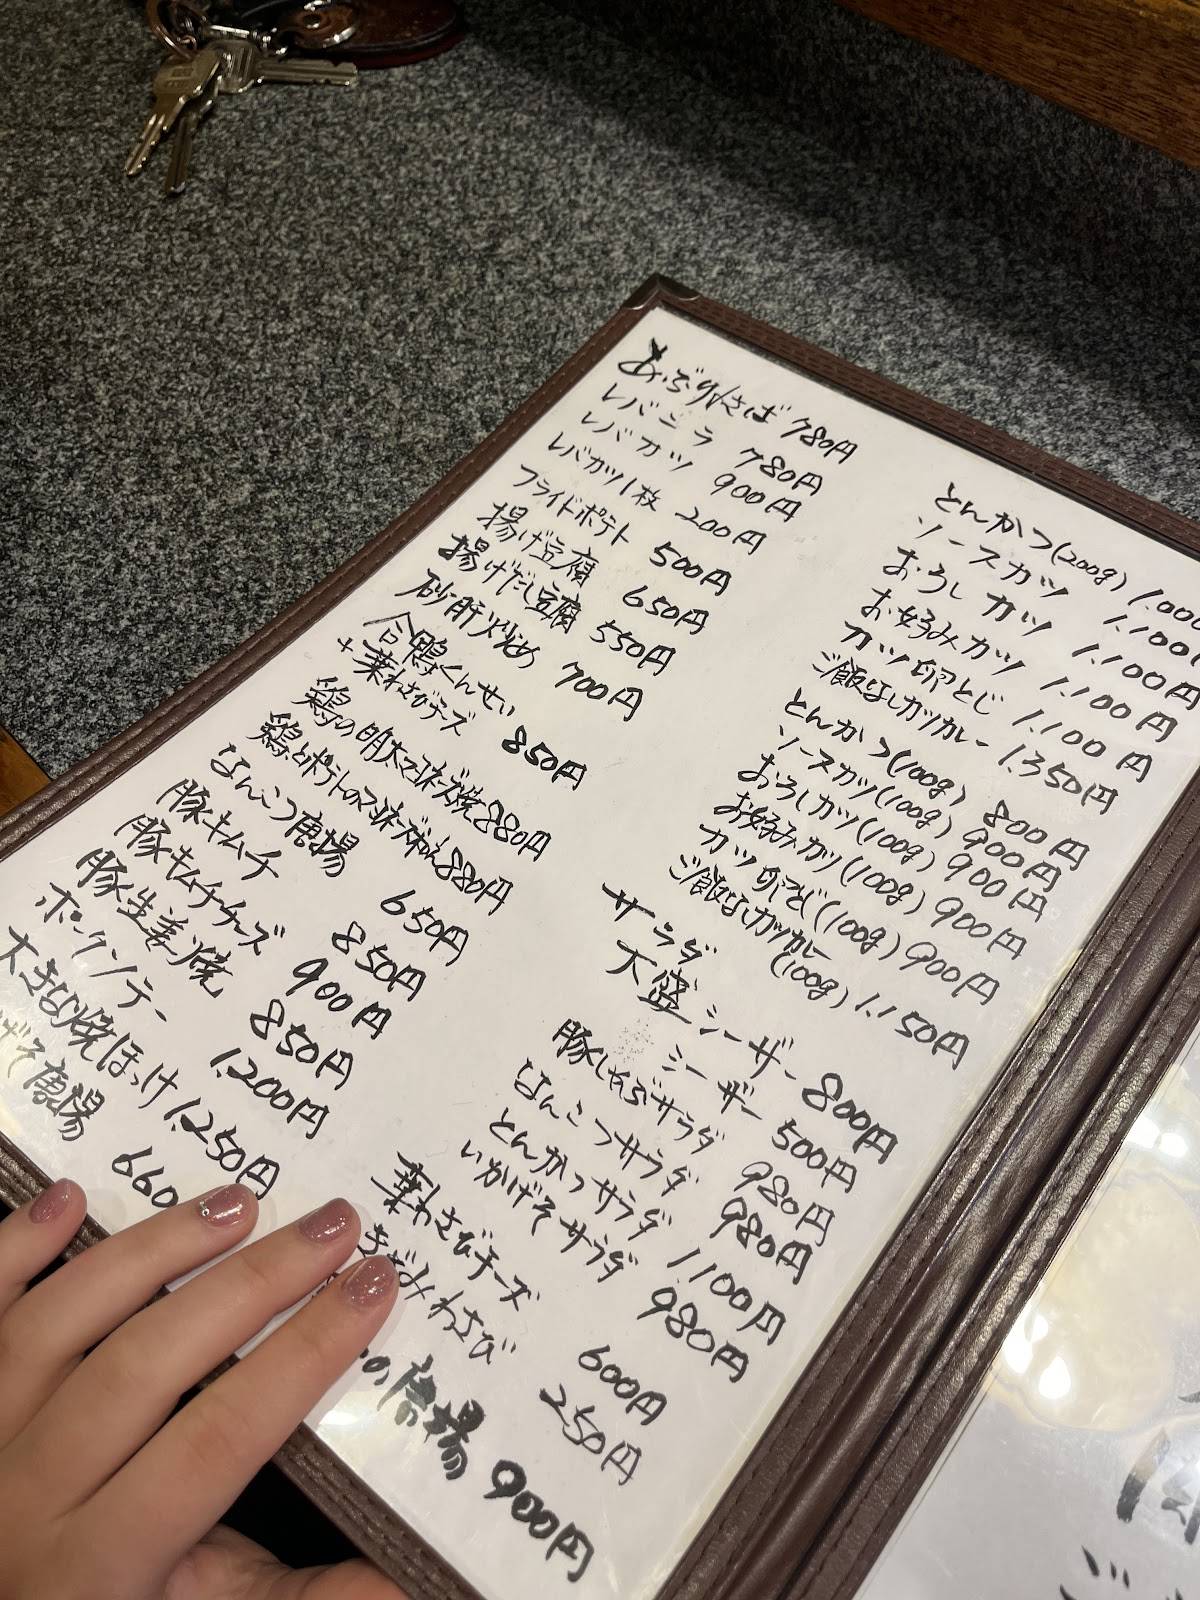 あぶりさば 780円
レバニラ 780円
レバカツ 900円
レバカツ1枚 200円
フライドポテト 500円
揚げ豆腐 650円
揚げだし豆腐 550円
砂肝炒め 700円
合鴨くんせい
+葉わさびチーズ 850円
鶏の明太マヨチーズ焼 880円
鶏とポテトのマヨチーズ 880円
なんこつ唐揚 650円
豚キムチ 850円
豚キムチチーズ 900円
豚生姜焼 850円
ポークソテー 1.200円
大きな焼ほっけ 1.250円
げそ唐揚 660
とんかつ(200g) 1.000
ソースカツ 1.100円
おろしカツ 1.100円
お好みカツ 1.100円
カツ卵とじ 1.100円
ご飯なしカツカレー 1.350円
とんかつ(100g) 800円
ソースカツ(100g) 900円
おろしカツ(100g) 900円
お好みカツ(100g) 900円
カツ卵とじ(100g) 900円
ご飯なしカツカレー
(100g) 1.150円
サラダ
大盛シーザー 800円
シーザー 500円
豚しゃぶサラダ 980円
なんこつサラダ 980円
とんかつサラダ 1.100円
いかげそサラダ 980円
葉わさびチーズ 600円
きざみわさび 250円
の唐揚 900円